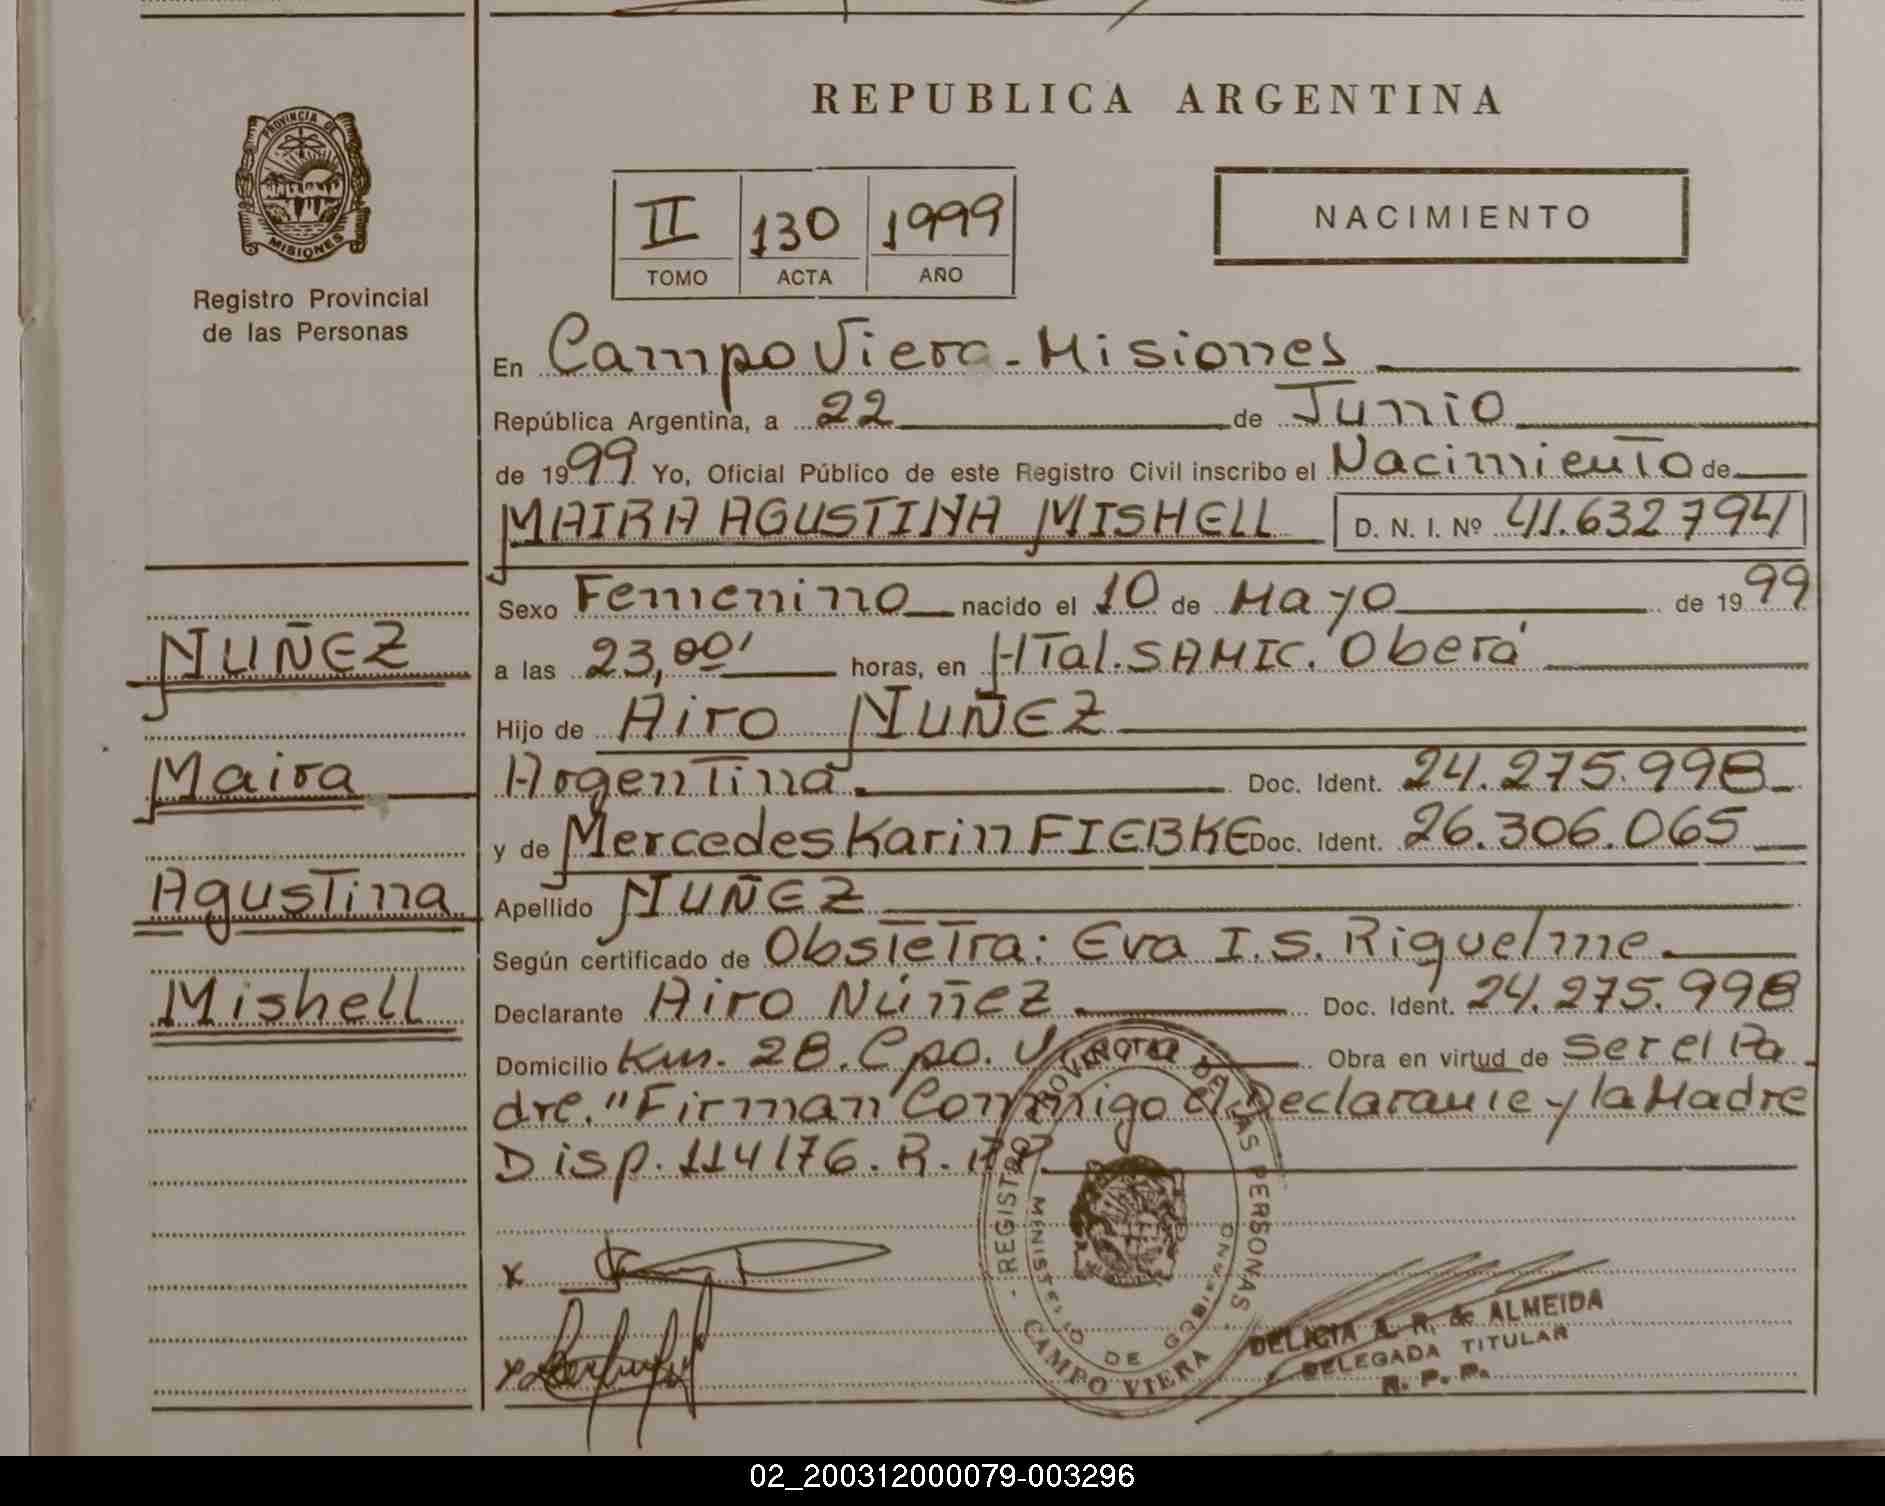 REPUBLICA ARGENTINA
PROVINCIA DE
MISIONES
Registro Provincial
de las Personas
II 130 1999
TOMO ACTA AÑO
NACIMIENTO
En Campo Viera - Misiones
República Argentina, a 22 de Junio
de 1999 Yo, Oficial Público de este Registro Civil inscribo el Nacimiento de
MAIRA AGUSTINA MISHELL D. N. I. Nº 41.632794
Sexo Femenino nacido el 10 de Mayo de 1999
a las 23,00' horas, en HTal. SAMIC. Oberá
Hijo de Airo NUÑEZ
Argentina Doc. Ident. 24.275.998
y de Mercedes Karin FIEBKE Doc. Ident. 26.306.065
Apellido NUÑEZ
Según certificado de Obstetra: Eva I. S. Riquelme
Declarante Airo Núñez Doc. Ident. 24.275.998
Domicilio Km. 28. Cpo. V. Obra en virtud de ser el Pa
dre. "Firman Conmigo el Declarante y la Madre
Disp. 114/76. R.
NUÑEZ
Maira
Agustina
Mishell
x
x
REGISTRO PROVINCIAL DE LAS PERSONAS
MINISTERIO DE GOBIERNO
CAMPO VIERA
DELICIA A. R. de ALMEIDA
DELEGADA TITULAR
R. P. P.
02_200312000079-003296